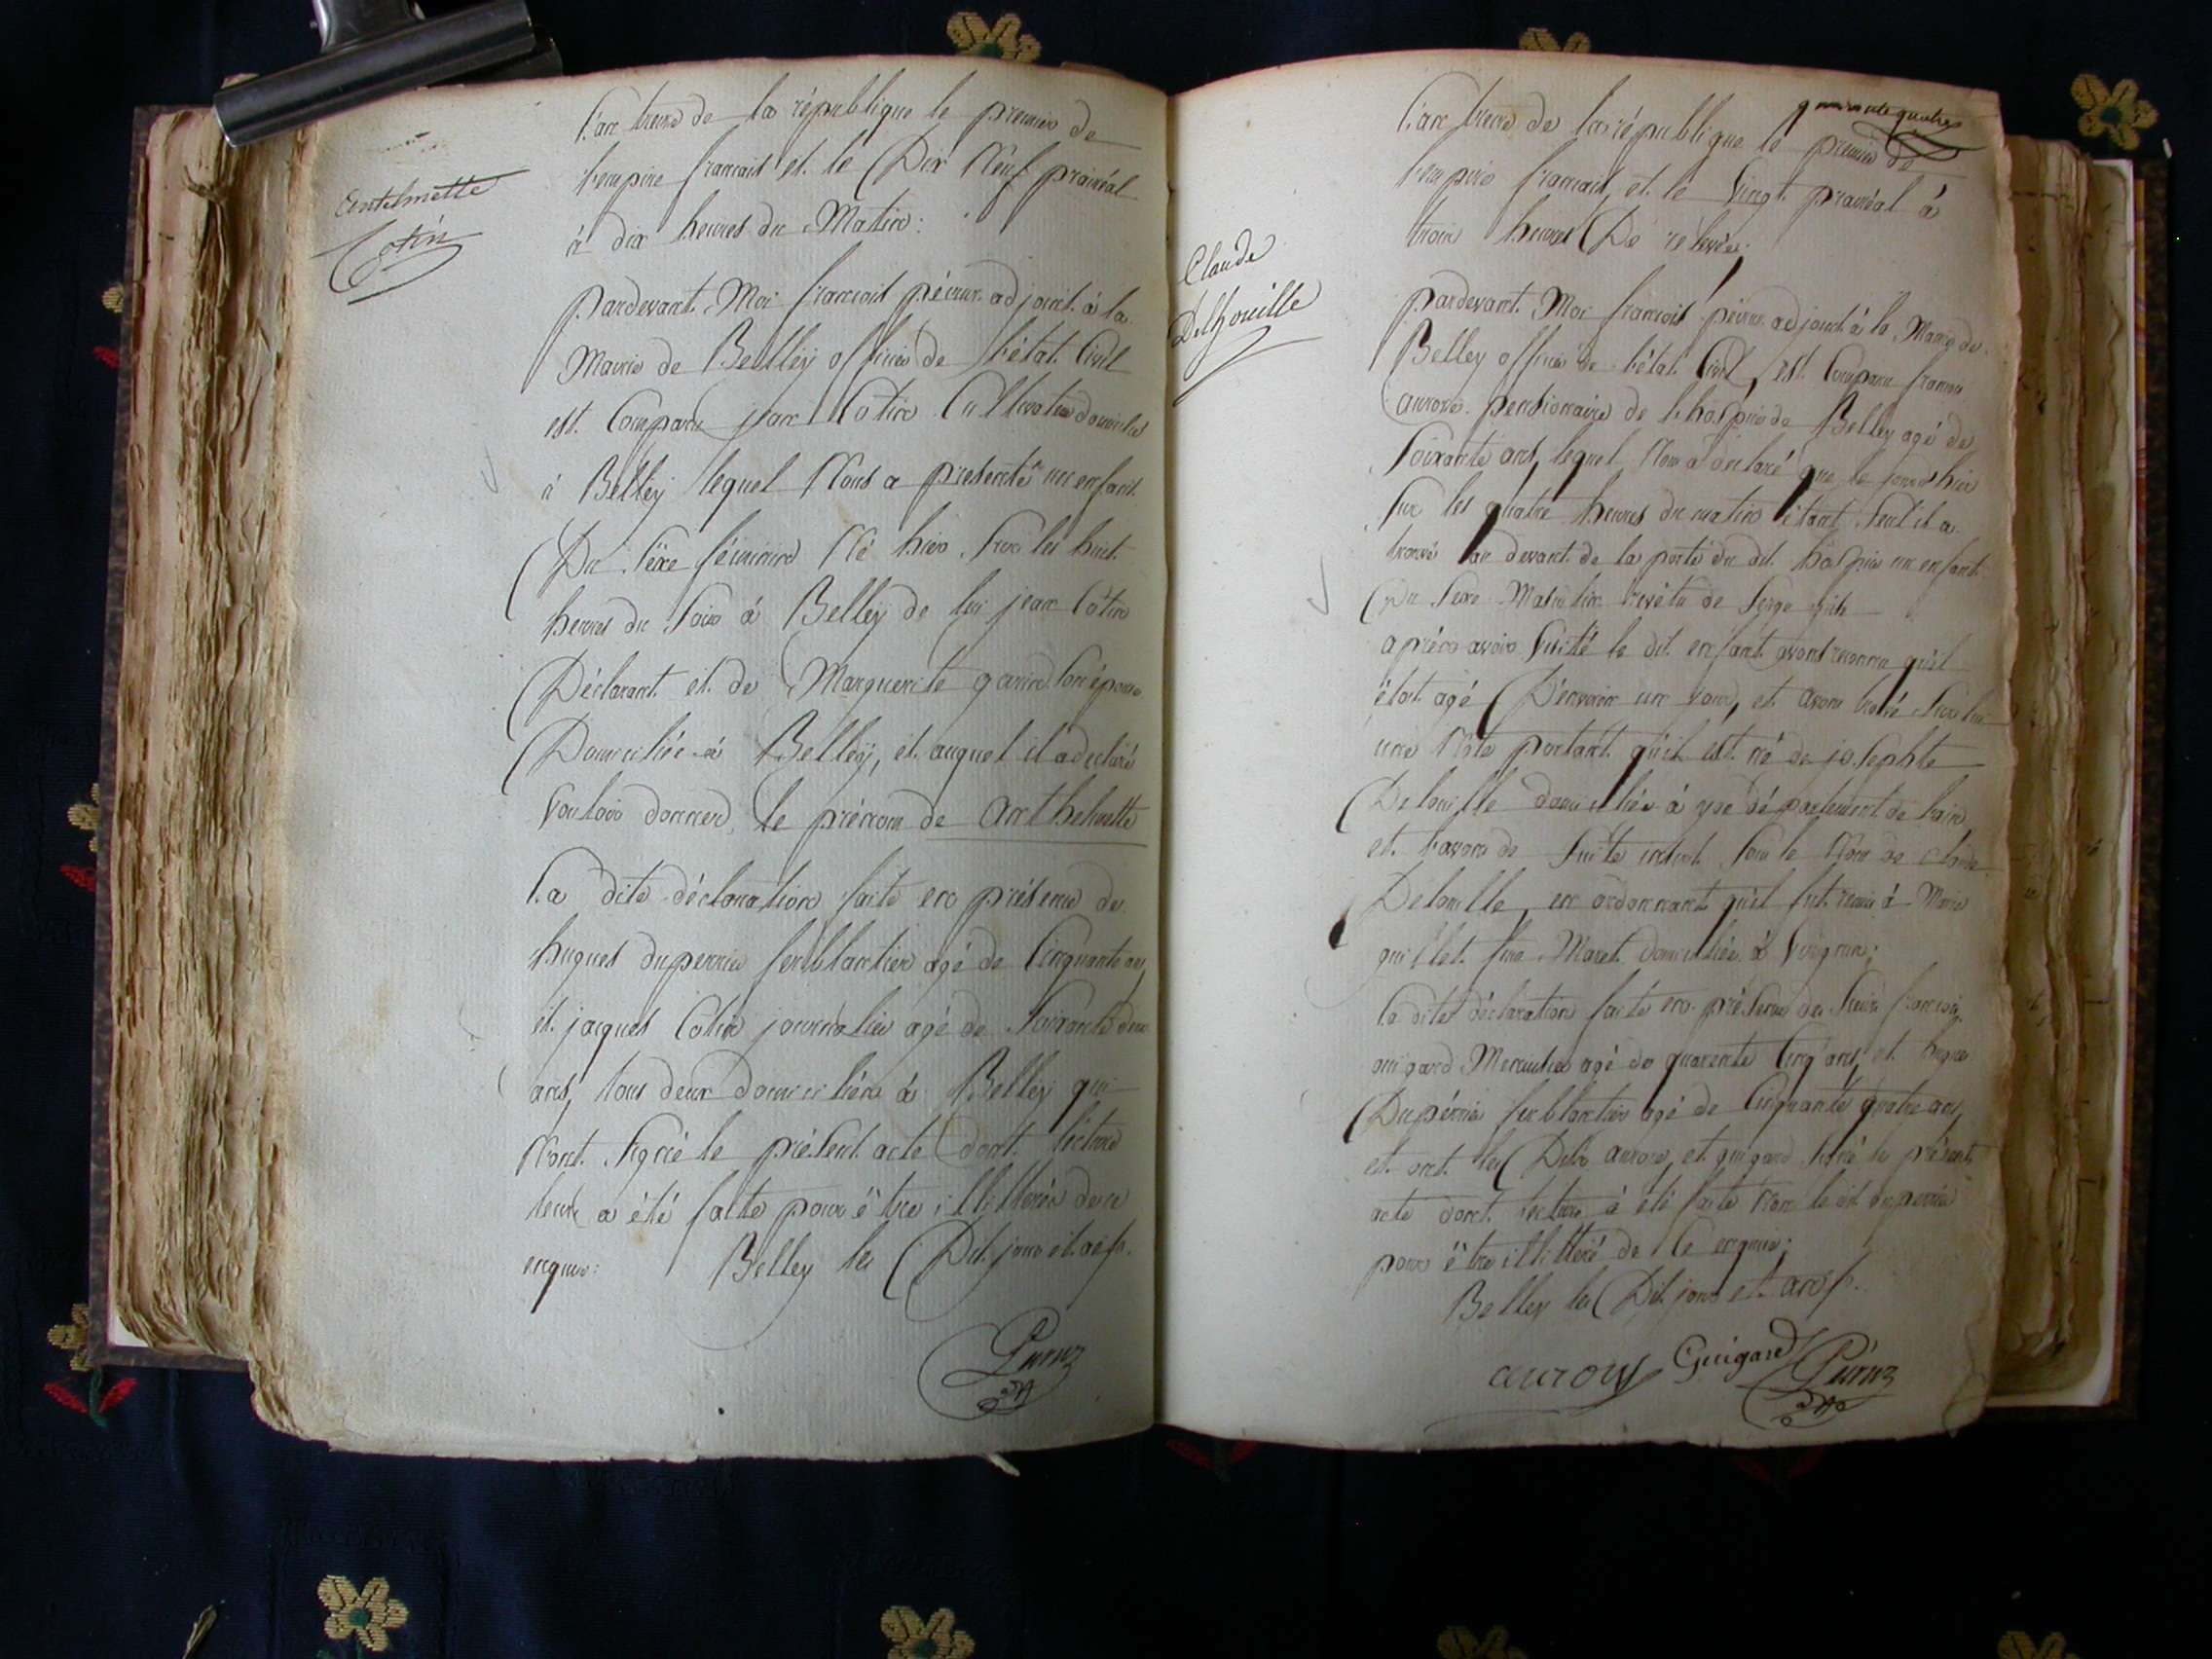 Antelmette
Cotin
L'an treize de la république le premier de
l'empire francais et le Dix Neuf prairéal
à dix heures du Matin :
pardevant Moi francois péruz adjoint à la
Mairie de Belleÿ officier de l'état Civil
est Comparu jean Cotin Cultivateur domicilié
à Belleÿ lequel Nous a présenté un enfant
Du séxe féminin Né hier sur les huit
heures du soir à Belleÿ de lui jean Cotin
Déclarant et de Marguerite son épouse
Domiciliée à Belleÿ, et auquel il a déclaré
vouloir donner le prénom de anthelmette
La dite déclaration faite en présence de
hugues duperrier ferblantier agé de Cinquante ans
et jacques Cotin journalier agé de soixante deux
ans, tous deux domiciliés à Belleÿ qui
N'ont signé le présent acte dont lecture
leur a été faite pour être illitterés de ce
enquis : Belley les Dit jour et an
Péruz
quarante quatre
Claude
Delhouille
L'an treize de la république le premier de
l'empire francais, et le vingt prairéal à
trois heures De relevée.
pardevant Moi francois péruz adjoint à la Mairie de
Belley officier de l'état Civil, est Comparu francois
auroy pensionnaire de l'hospice de Belley agé de
soixante ans, lequel Nous a déclaré que le jour d'hier
sur les quatre heures du matin étant seul il a
trouvé au devant de la porte du dit hospice un enfant
Du sexe Masculin revétu de
après avoir visité le dit enfant avons reconnu qu'il
était agé D'environ un jour, et avons trouvé sur lui
une Note portant qu'il est né de josephte
Delouille domiciliée à département de l'ain
et l'avons de suite inscrit sous le Nom de claude
Delouille, en ordonnant qu'il fut remis à Marie
guillet fme Maret domiciliée à Virignin ;
La dite déclaration faite en présence de francois
guigard Menuisier agé de quarente Cinq ans, et hugues
Dupérrier ferblantier agé de Cinquante quatre ans
et ont les Dits auroy, et guigard signé le présent
acte dont lecture à été faite Non le dit duperrier
pour être illittéré de Ce enquis ;
Belley les Dit jour et an
auroy Guigard Péruz